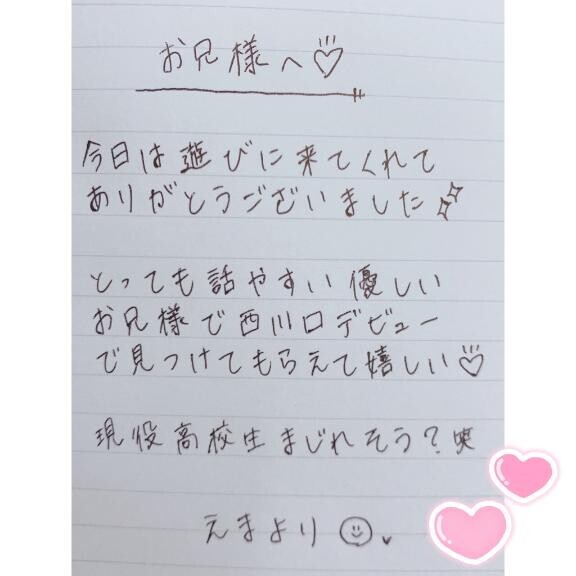 お兄様へ♡
今日は遊びに来てくれて
ありがとうございました
とっても話やすい優しい
お兄様で西川口デビュー
で見つけてもらえて嬉しい♡
現役高校生まじれそう？笑
えまより